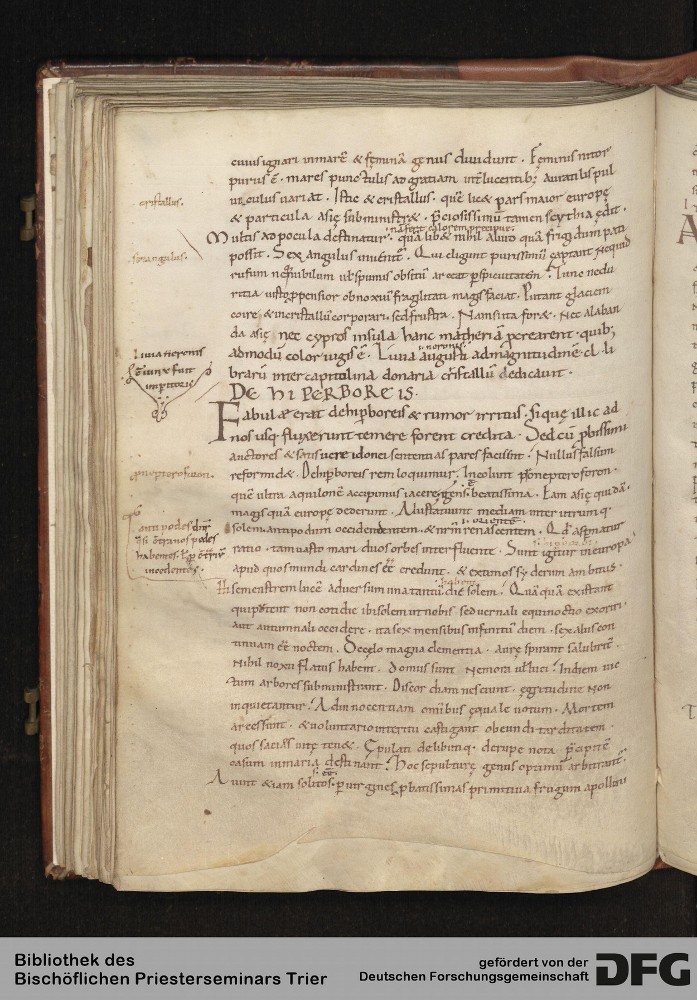 cuius ignari in marē & fęminā genus diuidunt . Feminis nitor
purus ē . mares punctulis ad gratiam interlucentib; auratilis pul
uisculus uariat . Istic & cristallus . quē licęt pars maior europę
cristallus.
& particula asię subministrat . p̄ciosissimū tamen scythia ędit .
Multus ad pocula destinatur . quā libęt nihil aliud quā frigidum pati
possit . Sex angulus inuenit . Qui eligunt purissimū captant ne quid
sexangulus.
rufum nubilum uel spumis obsitū arceat p̱spicuitatē . Tunc ne du
ritia iusto ppensior obnoxiū fragilitati magis faciat . Putant glaciem
coire & in cristallū corporari . sed frustra . Nam si ita foret . Nec alaban
da asię nec cypros insula hanc matheriā procrearent . quib;
Liuia neronis
admodū color iugis ē . Liuia augusti ad magnitudinē . cl . li
i . neronis
brarū inter capitolina donaria cristallū dedicauit .
DE HIPERBOREIS.
Fabula erat de hiperboreis & rumor irritus . si quę illic ad
nos usq. fluxerunt temere forent credita . Sed cū probissimi
auctores & satis uere idonei sententias pares faciunt . Nullus falsum
reformidet . De hiperboreis rem loquimur . Incolunt
quē ultra aquilonē accipimus iacere gens beatissima . Eam asię quidā .
magis quā europę dederunt . Alii statuunt mediam inter utrumq.
solem . antipodum occidentem . & nrm̄ renascentem . Qd̄ aspernatur
i . oriente
ratio . tam uasto mari duos orbes interfluente . Sunt igitur in europa .
apud quos mundi cardines eē credunt . & extimos syderum ambitus .
Semenstrem lucē aduersum una tantū die solem . Quā quā existant
qui putent non cotidie ibi solem ut nobis . sed uernali equinoctio exoriri .
aut autumnali occidere . ita sex mensibus infinitū diem . sex aliis con
tinuam eē noctem . De cęlo magna clementia . aurę spirant salubritē .
Nihil noxiū flatus habent . Domus sunt nemora uel luci . In diem uic
tum arbores subministrant . Discordiam nesciunt . ęgritudine non
inquietantur . Ad innocentiam omnibus ęquale uotum . Mortem
arcessunt . & uoluntario interitu castigant obeundi tarditatem .
quos sacias uitę tenet . Ępulati delibutiq. de rupe nota p̄cipitē
casum in maria destinant . hoc sepulturę genus optimū arbitrant .
Aiunt etiam solitos . per uirgines probatissimas primitiua frugum apollini
Bibliothek des
Bischöflichen Priesterseminars Trier
gefördert von der
Deutschen Forschungsgemeinschaft
DFG